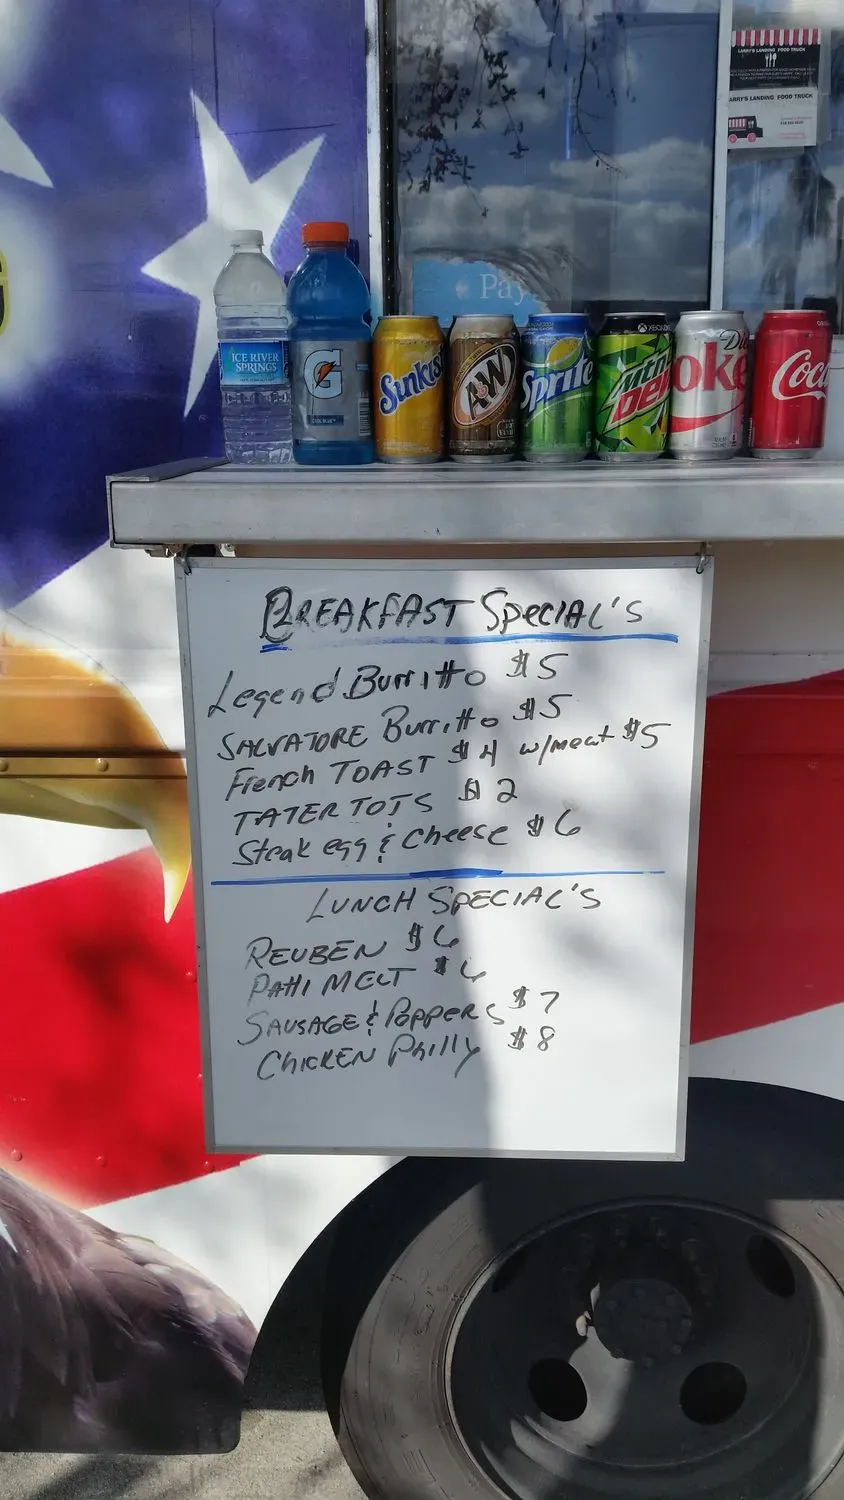 LARRY'S LANDING FOOD TRUCK
LARRY'S LANDING FOOD TRUCK
Pay
ICE RIVER
SPRINGS
G
COOL BLUE
Sunkis
A&W
Sprite
XBOX ONE
Mtn
Dew
Di
oke
Coca
BREAKFAST SpeciAL'S
Legend Burritto $5
SALVATORE Burritto $5
French TOAST $4 w/meat $5
TATER TOTS $2
Steak egg & cheese $6
LUNCH SPECIAL'S
REUBEN $6
PAtti MELT $6
SAUSAGE & PEPPERS $7
CHICKEN Philly $8